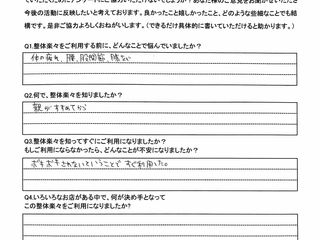 今後の活動に反映したいと考えております。良かったこと嬉しかったこと、どのような些細なことでも結
構です。是非ご協力よろしくおねがいします。（できるだけ具体的に書いていただけると助かります。）
Q1.整体楽々をご利用する前に、どんなことで悩んでいましたか？
体の疲れ、腰、股関節、
Q2.何で、整体楽々を知りましたか？
親がすすめてから
Q3.整体楽々を知ってすぐにご利用になりましたか？
もしご利用にならなかったら、どんなことが不安になりましたか？
ボキボキされないということで すぐ利用した。
Q4.いろいろなお店がある中で、何が決め手となって
この整体楽々をご利用になりましたか？